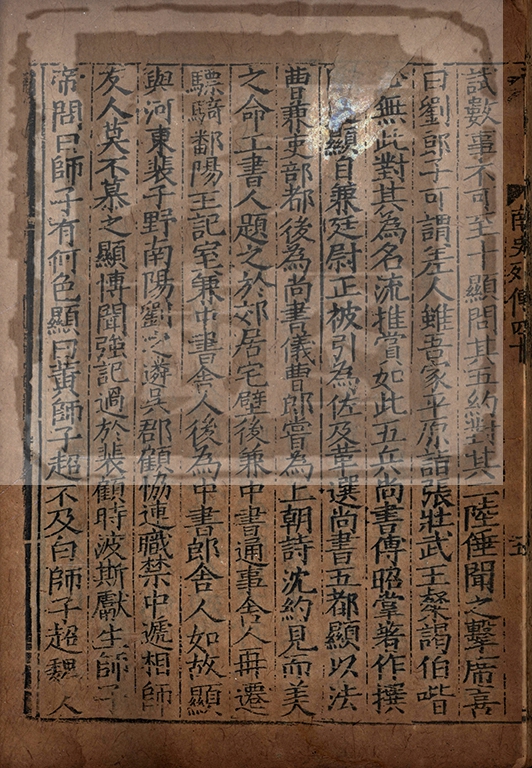 試數事不可至十顯問其五約對其二陸倕聞之擊席喜
曰劉郎子可謂差人雖吾家平原詣張壯武王粲謁伯喈
必無此對其為名流推賞如此五兵尚書傅昭掌著作撰
顯自兼廷尉正被引為佐及革選尚書五都顯以法
曹兼吏部郎後為尚書儀曹郎嘗為上朝詩沈約見而美
之命工書人題之於郊居宅壁後兼中書通事舍人再遷
驃騎鄱陽王記室兼中書舍人後為中書郎舍人如故顯
與河東裴子野南陽劉之遴吳郡顧協連職禁中遞相師
友人莫不慕之顯博聞強記過於裴顧時波斯獻生師子
帝問曰師子有何色顯曰黃師子超不及白師子超魏人
南史列傳四十
五